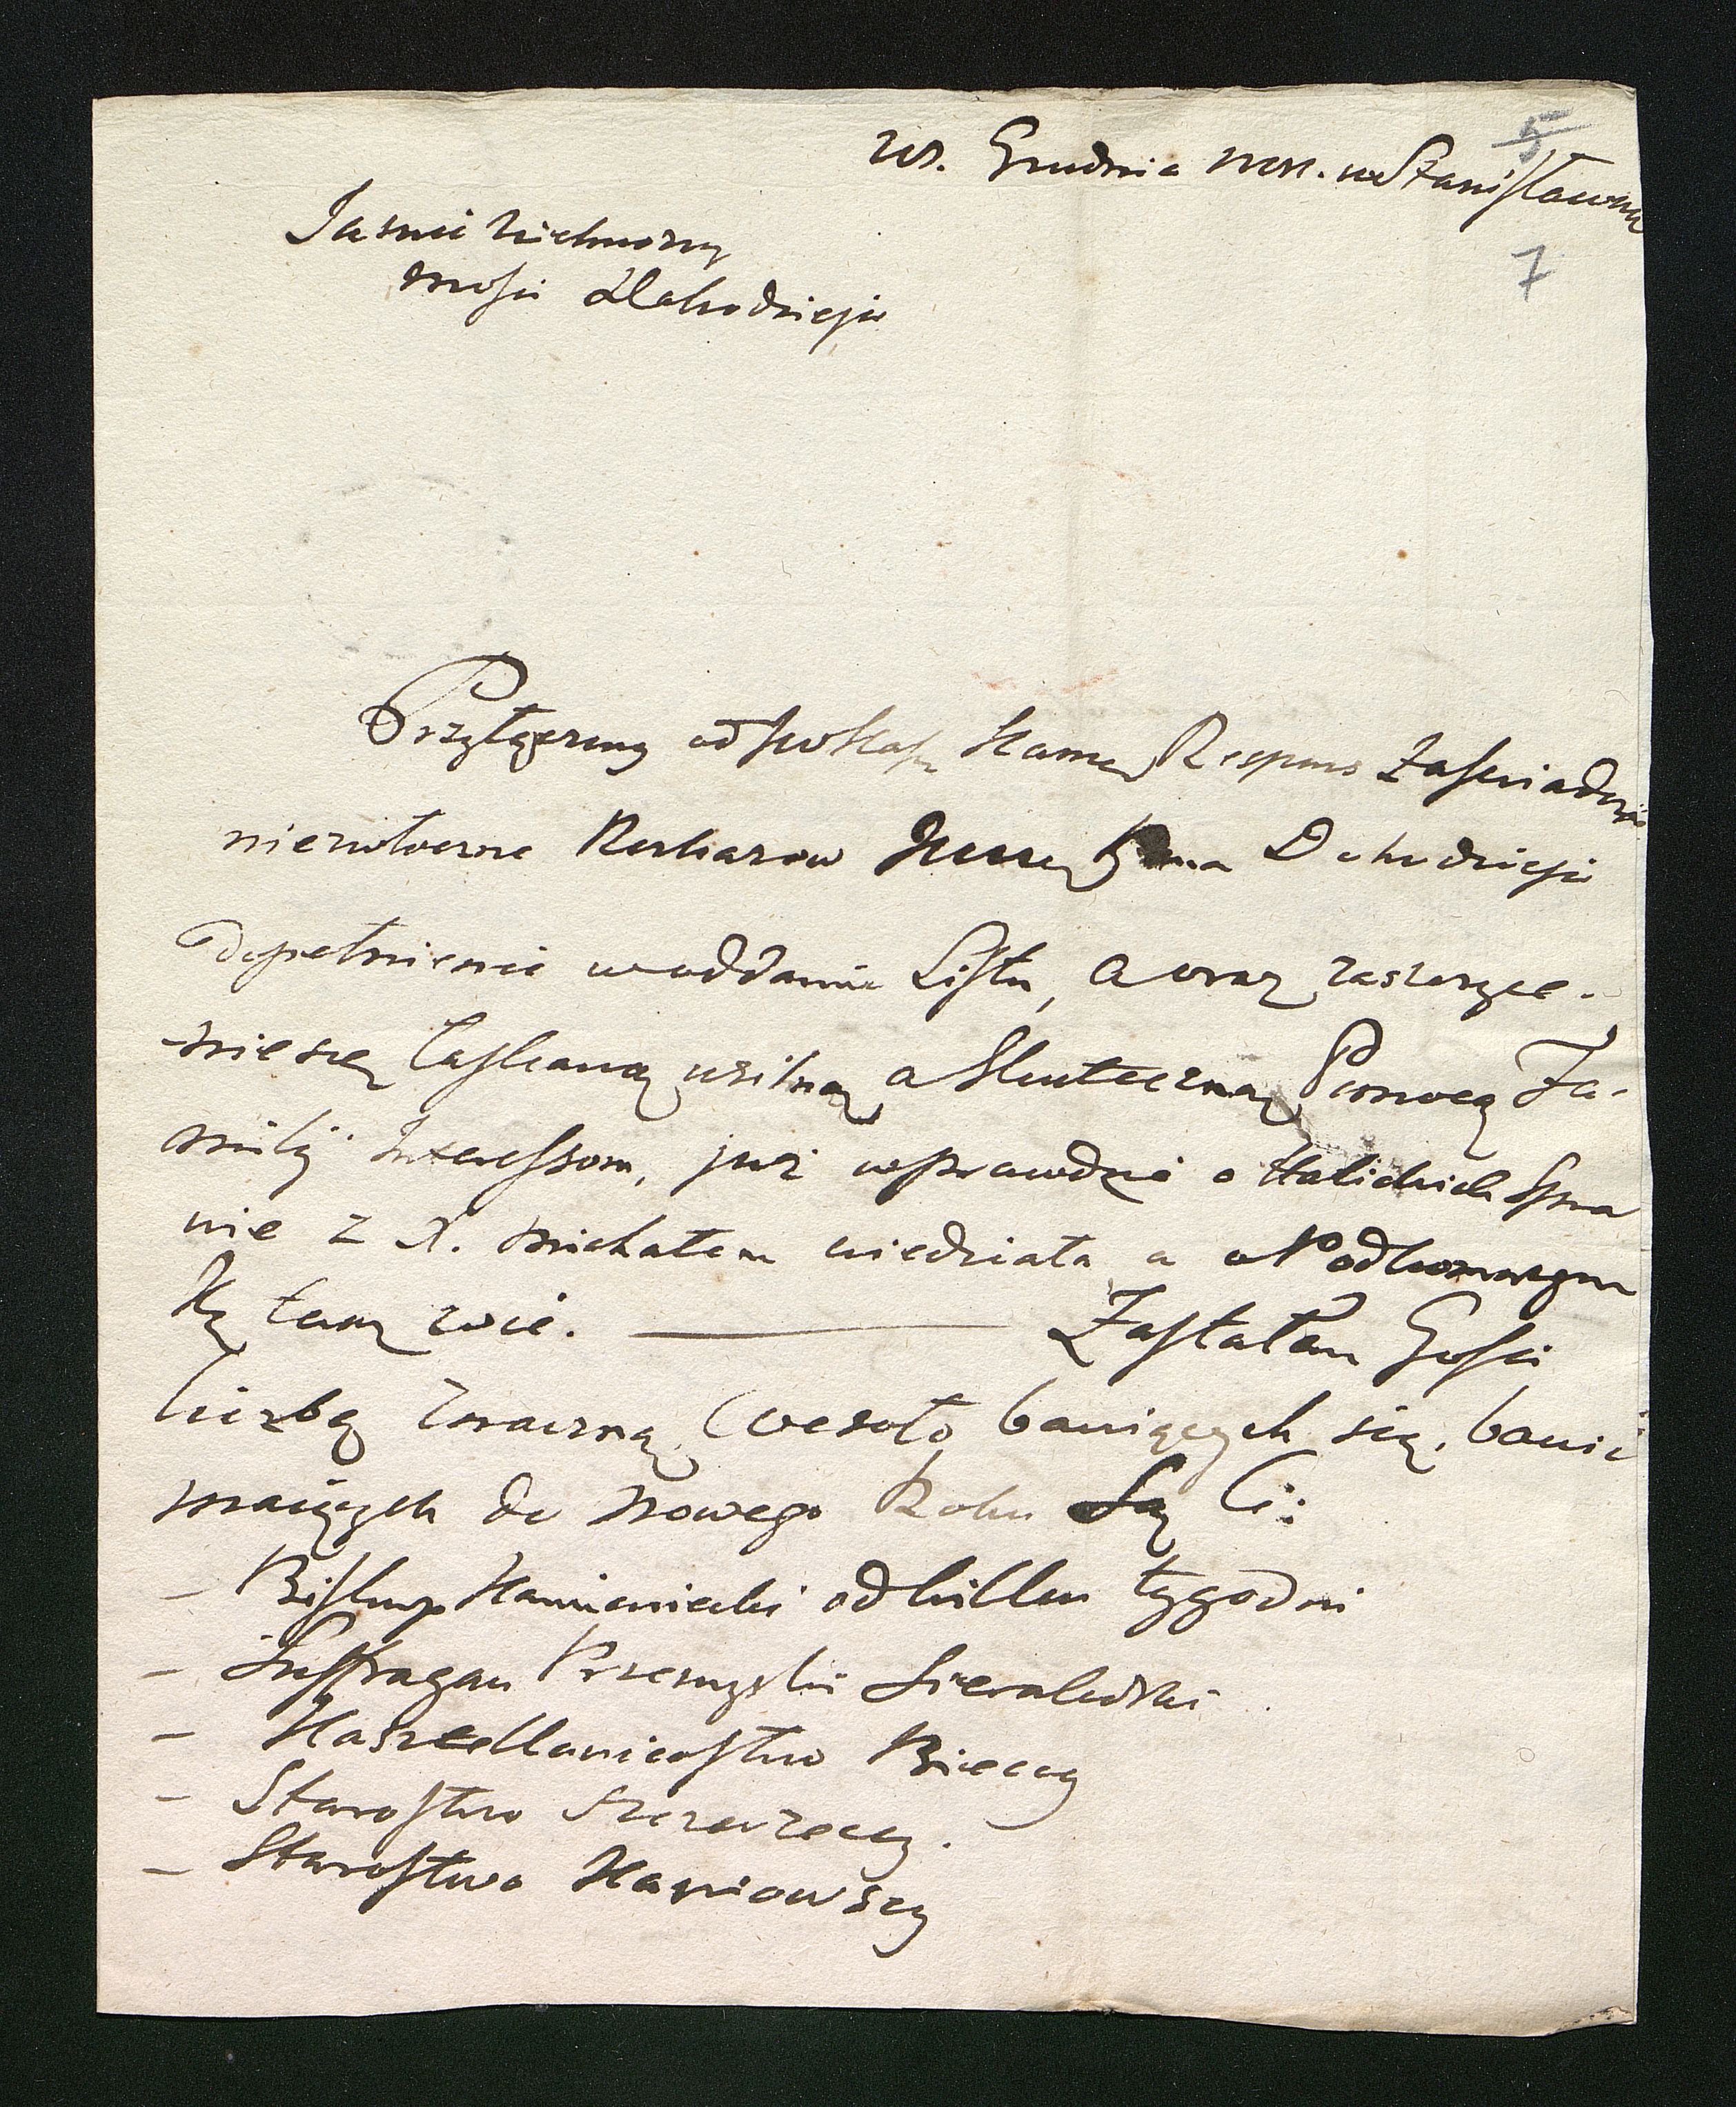 Grudnia w Stanisławow
5
7
Jasnie Wielmożny
Mosci Dobrodzieju
Przyłączony od Respons Zaswiadczy
niezwłoczne Roskazow Dobrodzieja
dopełnienie w oddaniu Listu, a oraz zaszczyce-
nie się łaskawą usilną a Skuteczną Pomocą Fa-
milij Interessom, już wprawdzie o Halickich Spra
wie z X. Michałem wiedziała a o Podkomorzym
Zastałem Gosci
liczbę znaczną, wesoło bawiących się, bawić
maiących do Nowego Roku Są Ci:
- Biskup Kamieniecki od kilku tygodni
- Suffragan Przemyslki Sierakowski
- Kasztellanicostwo Bieccy
- Starostwo Szczurzeccy.
- Starostwo Kaniowscy